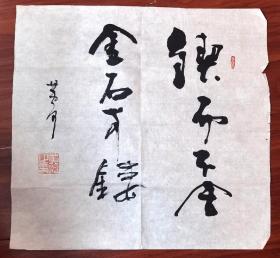 锲而不舍
金石可镂